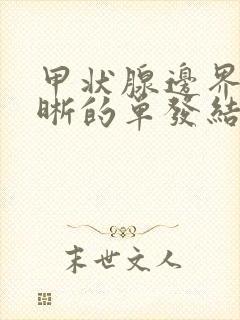 甲状腺邊界
晰的单發結
末世文人